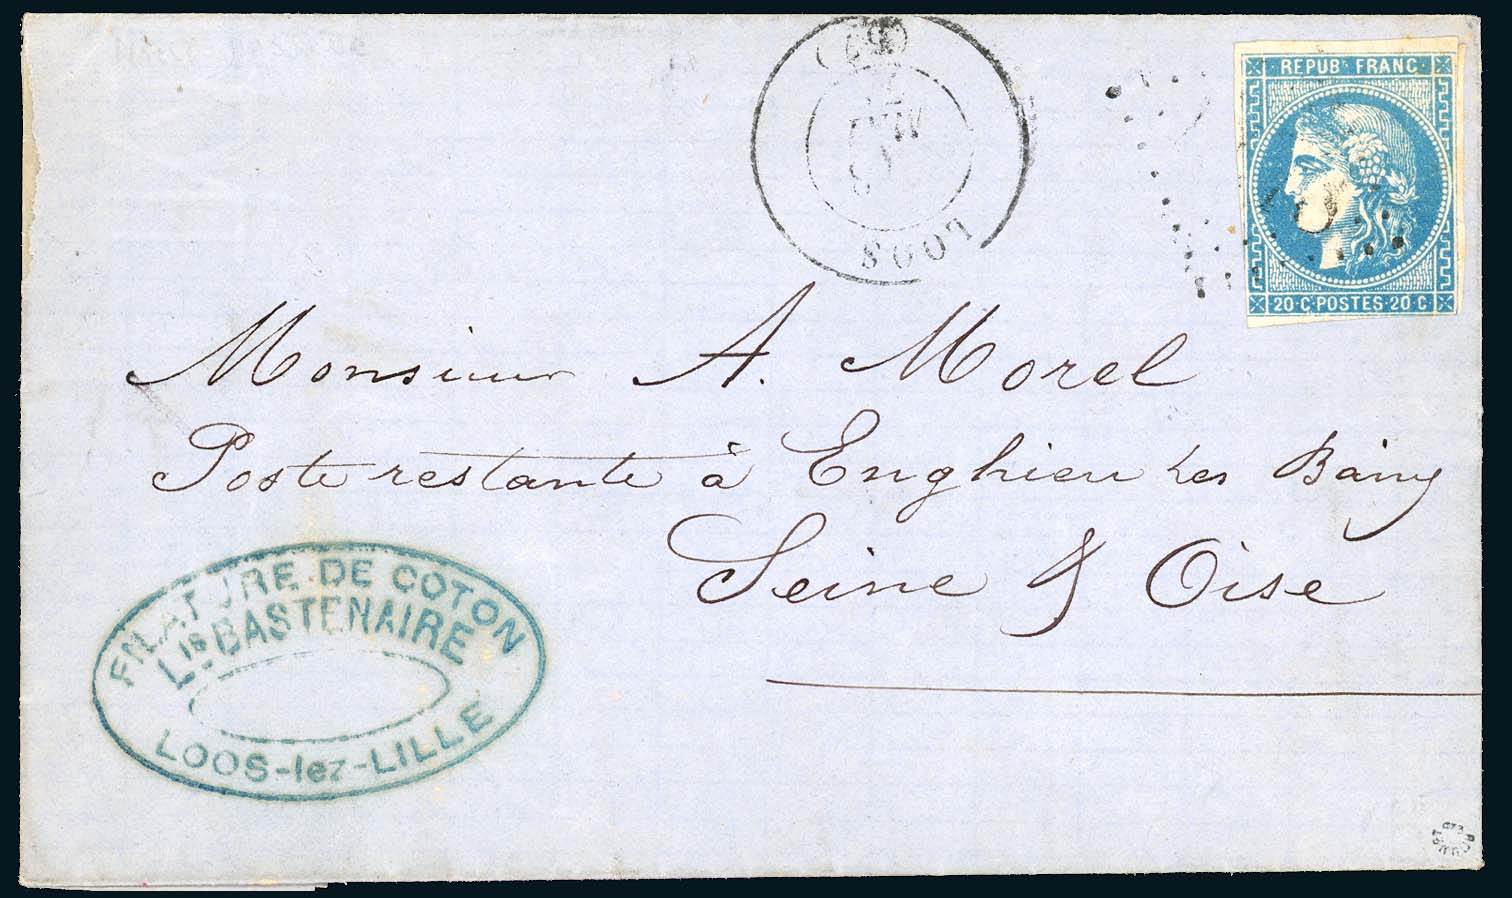 LOOS
(57)
REPUB. FRANC.
20·C·POSTES·20·C
Monsieur A. Morel
Poste restante à Enghien les Bains
Seine & Oise
FILATURE DE COTON
Lis BASTENAIRE
LOOS-lez-LILLE